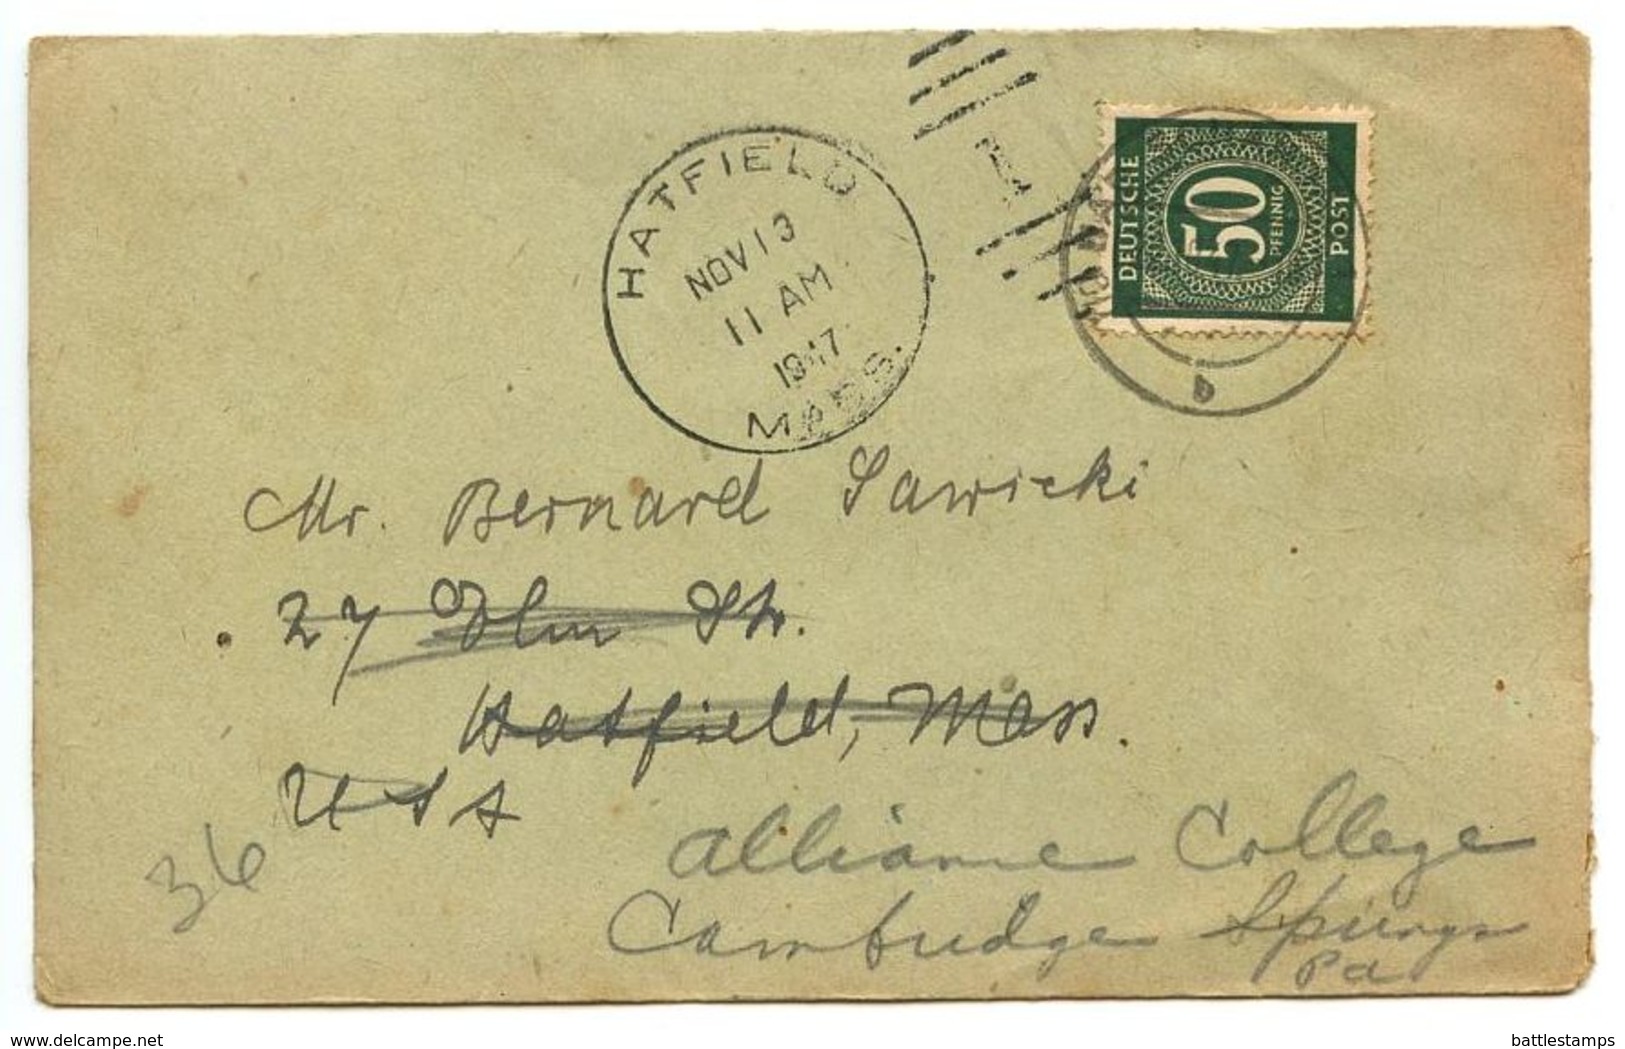 HATFIELD
NOV 13
11 AM
1947
MASS.
DEUTSCHE
50
PFENNIG
POST
b
Mr. Bernard Sawicki
27 Elm Str.
Hatfield, Mass.
USA
36
Alliance College
Cambridge Springs
Pa
www.delcampe.net
battlestamps